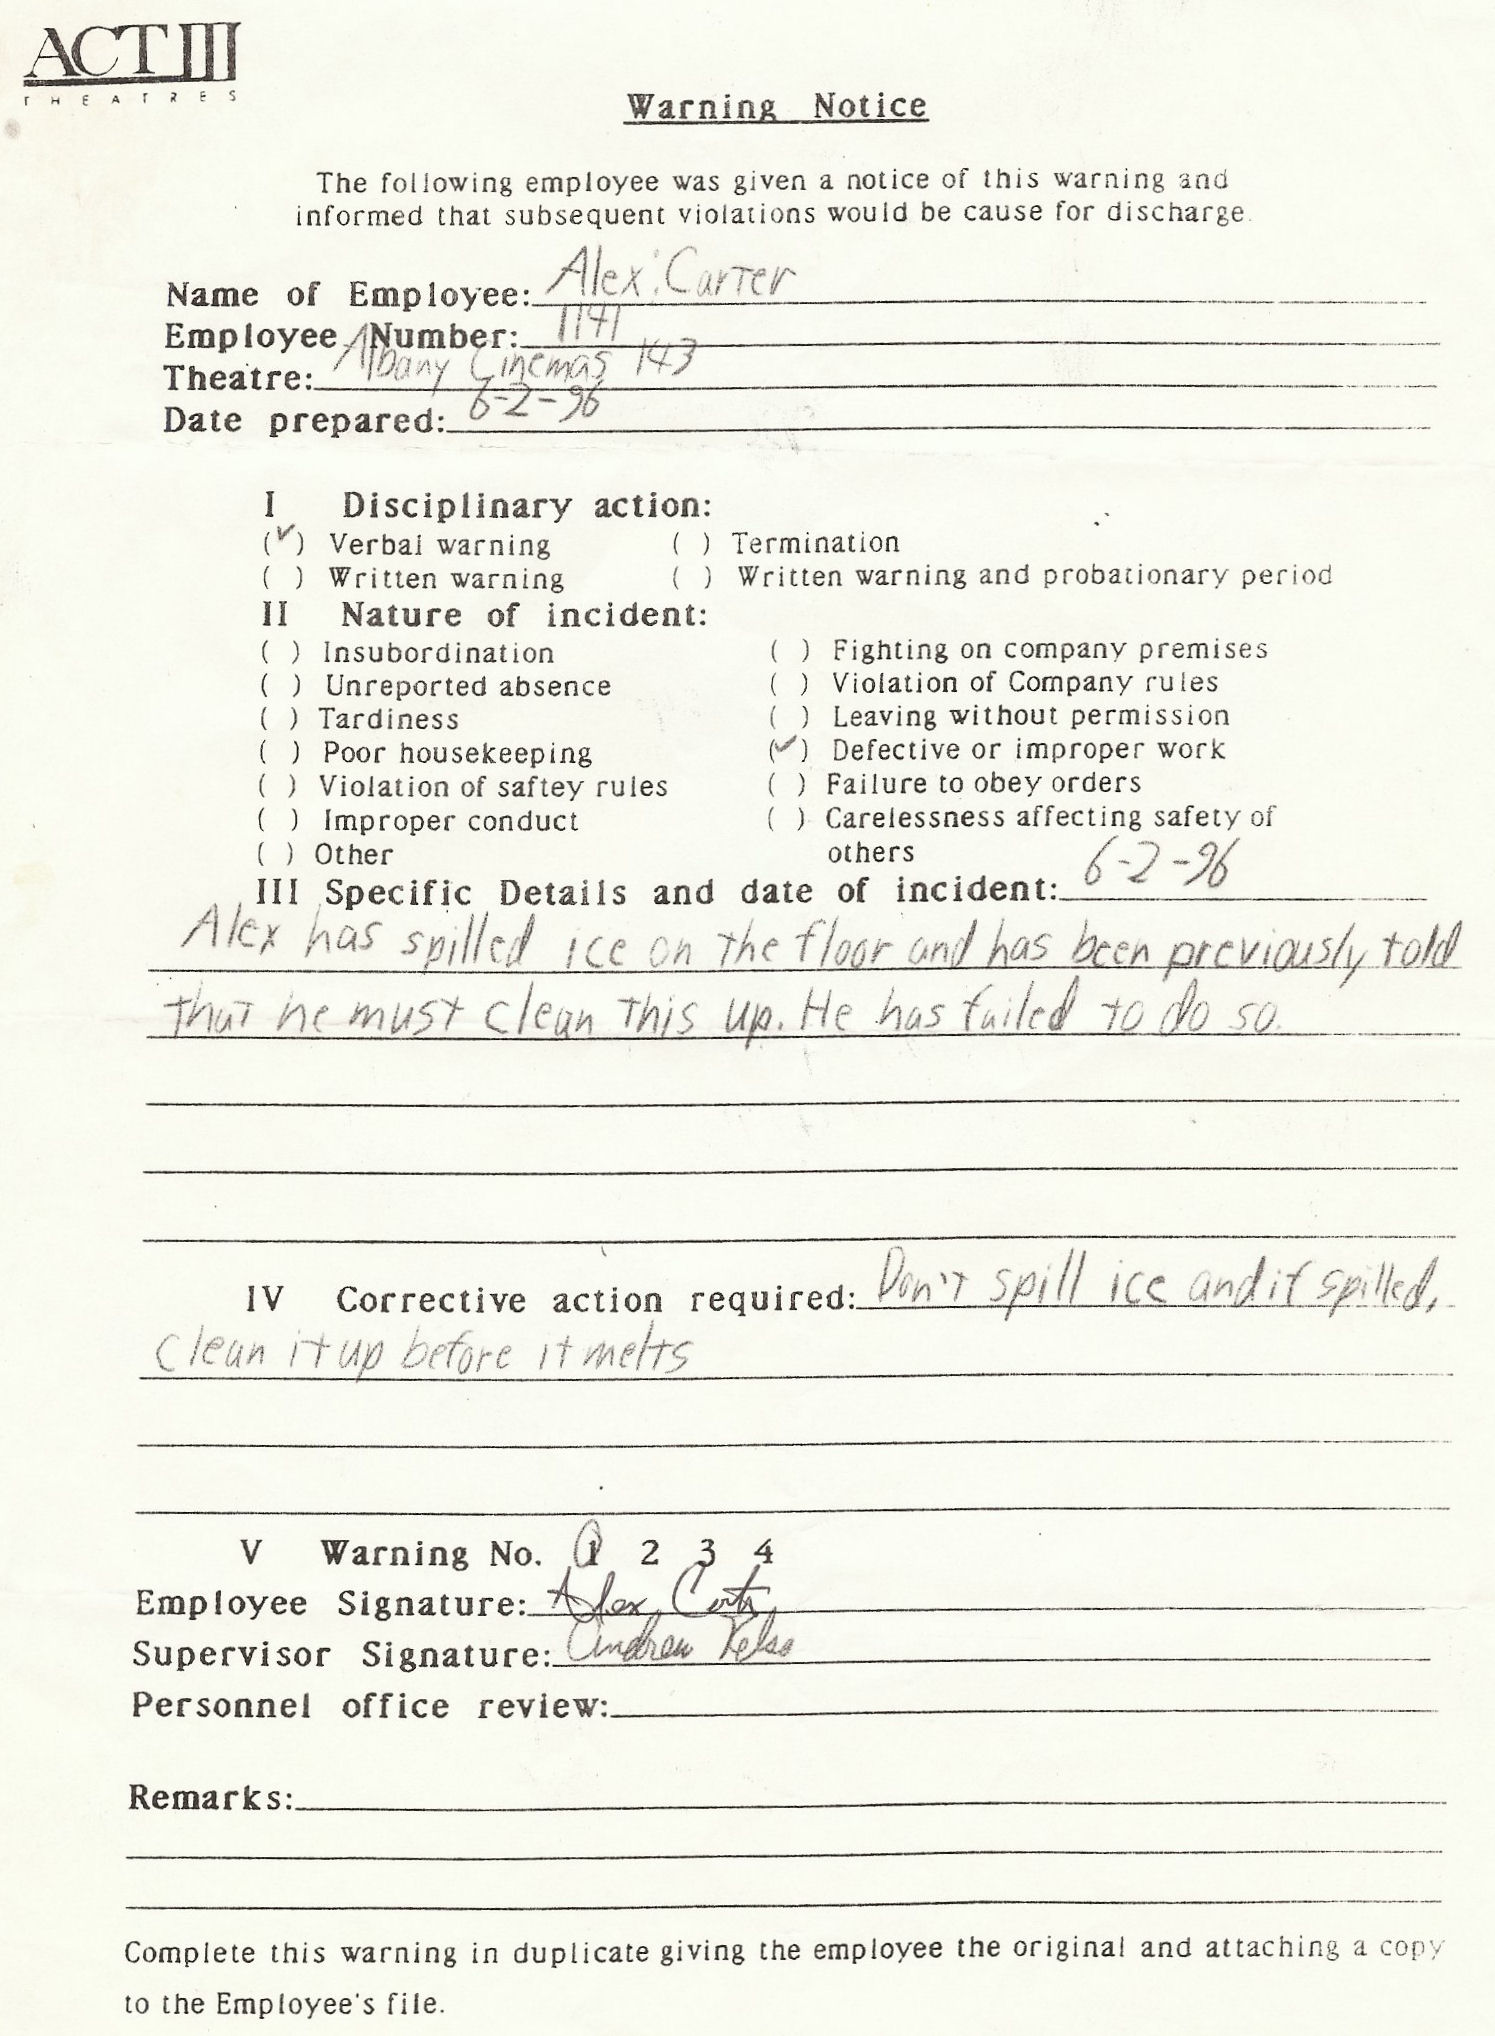 ACT III
THEATRES
Warning Notice
The following employee was given a notice of this warning and
informed that subsequent violations would be cause for discharge.
Name of Employee: Alex Carter
Employee Number: 1141
Theatre: Albany Cinemas 143
Date prepared: 6-2-96
I Disciplinary action:
(✓) Verbal warning ( ) Termination
( ) Written warning ( ) Written warning and probationary period
II Nature of incident:
( ) Insubordination ( ) Fighting on company premises
( ) Unreported absence ( ) Violation of Company rules
( ) Tardiness ( ) Leaving without permission
( ) Poor housekeeping (✓) Defective or improper work
( ) Violation of saftey rules ( ) Failure to obey orders
( ) Improper conduct ( ) Carelessness affecting safety of
( ) Other others
III Specific Details and date of incident: 6-2-96
Alex has spilled ice on the floor and has been previously told
that he must clean this up. He has failed to do so.
IV Corrective action required: Don't spill ice and if spilled,
clean it up before it melts
V Warning No. 1 2 3 4
Employee Signature: Alex Carter
Supervisor Signature: Andrew Kelso
Personnel office review:
Remarks:
Complete this warning in duplicate giving the employee the original and attaching a copy
to the Employee's file.